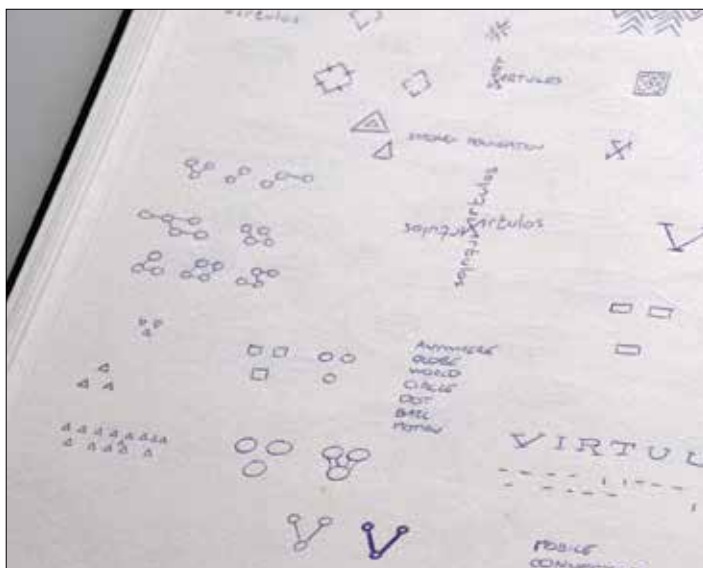 virtulos
VIRTULOS
STRONG FOUNDATION
virtulos
virtulos
virtulos
virtulos
ANYWHERE
GLOBE
WORLD
CIRCLE
DOT
BALL
MOTION
VIRTUL
MOBILE